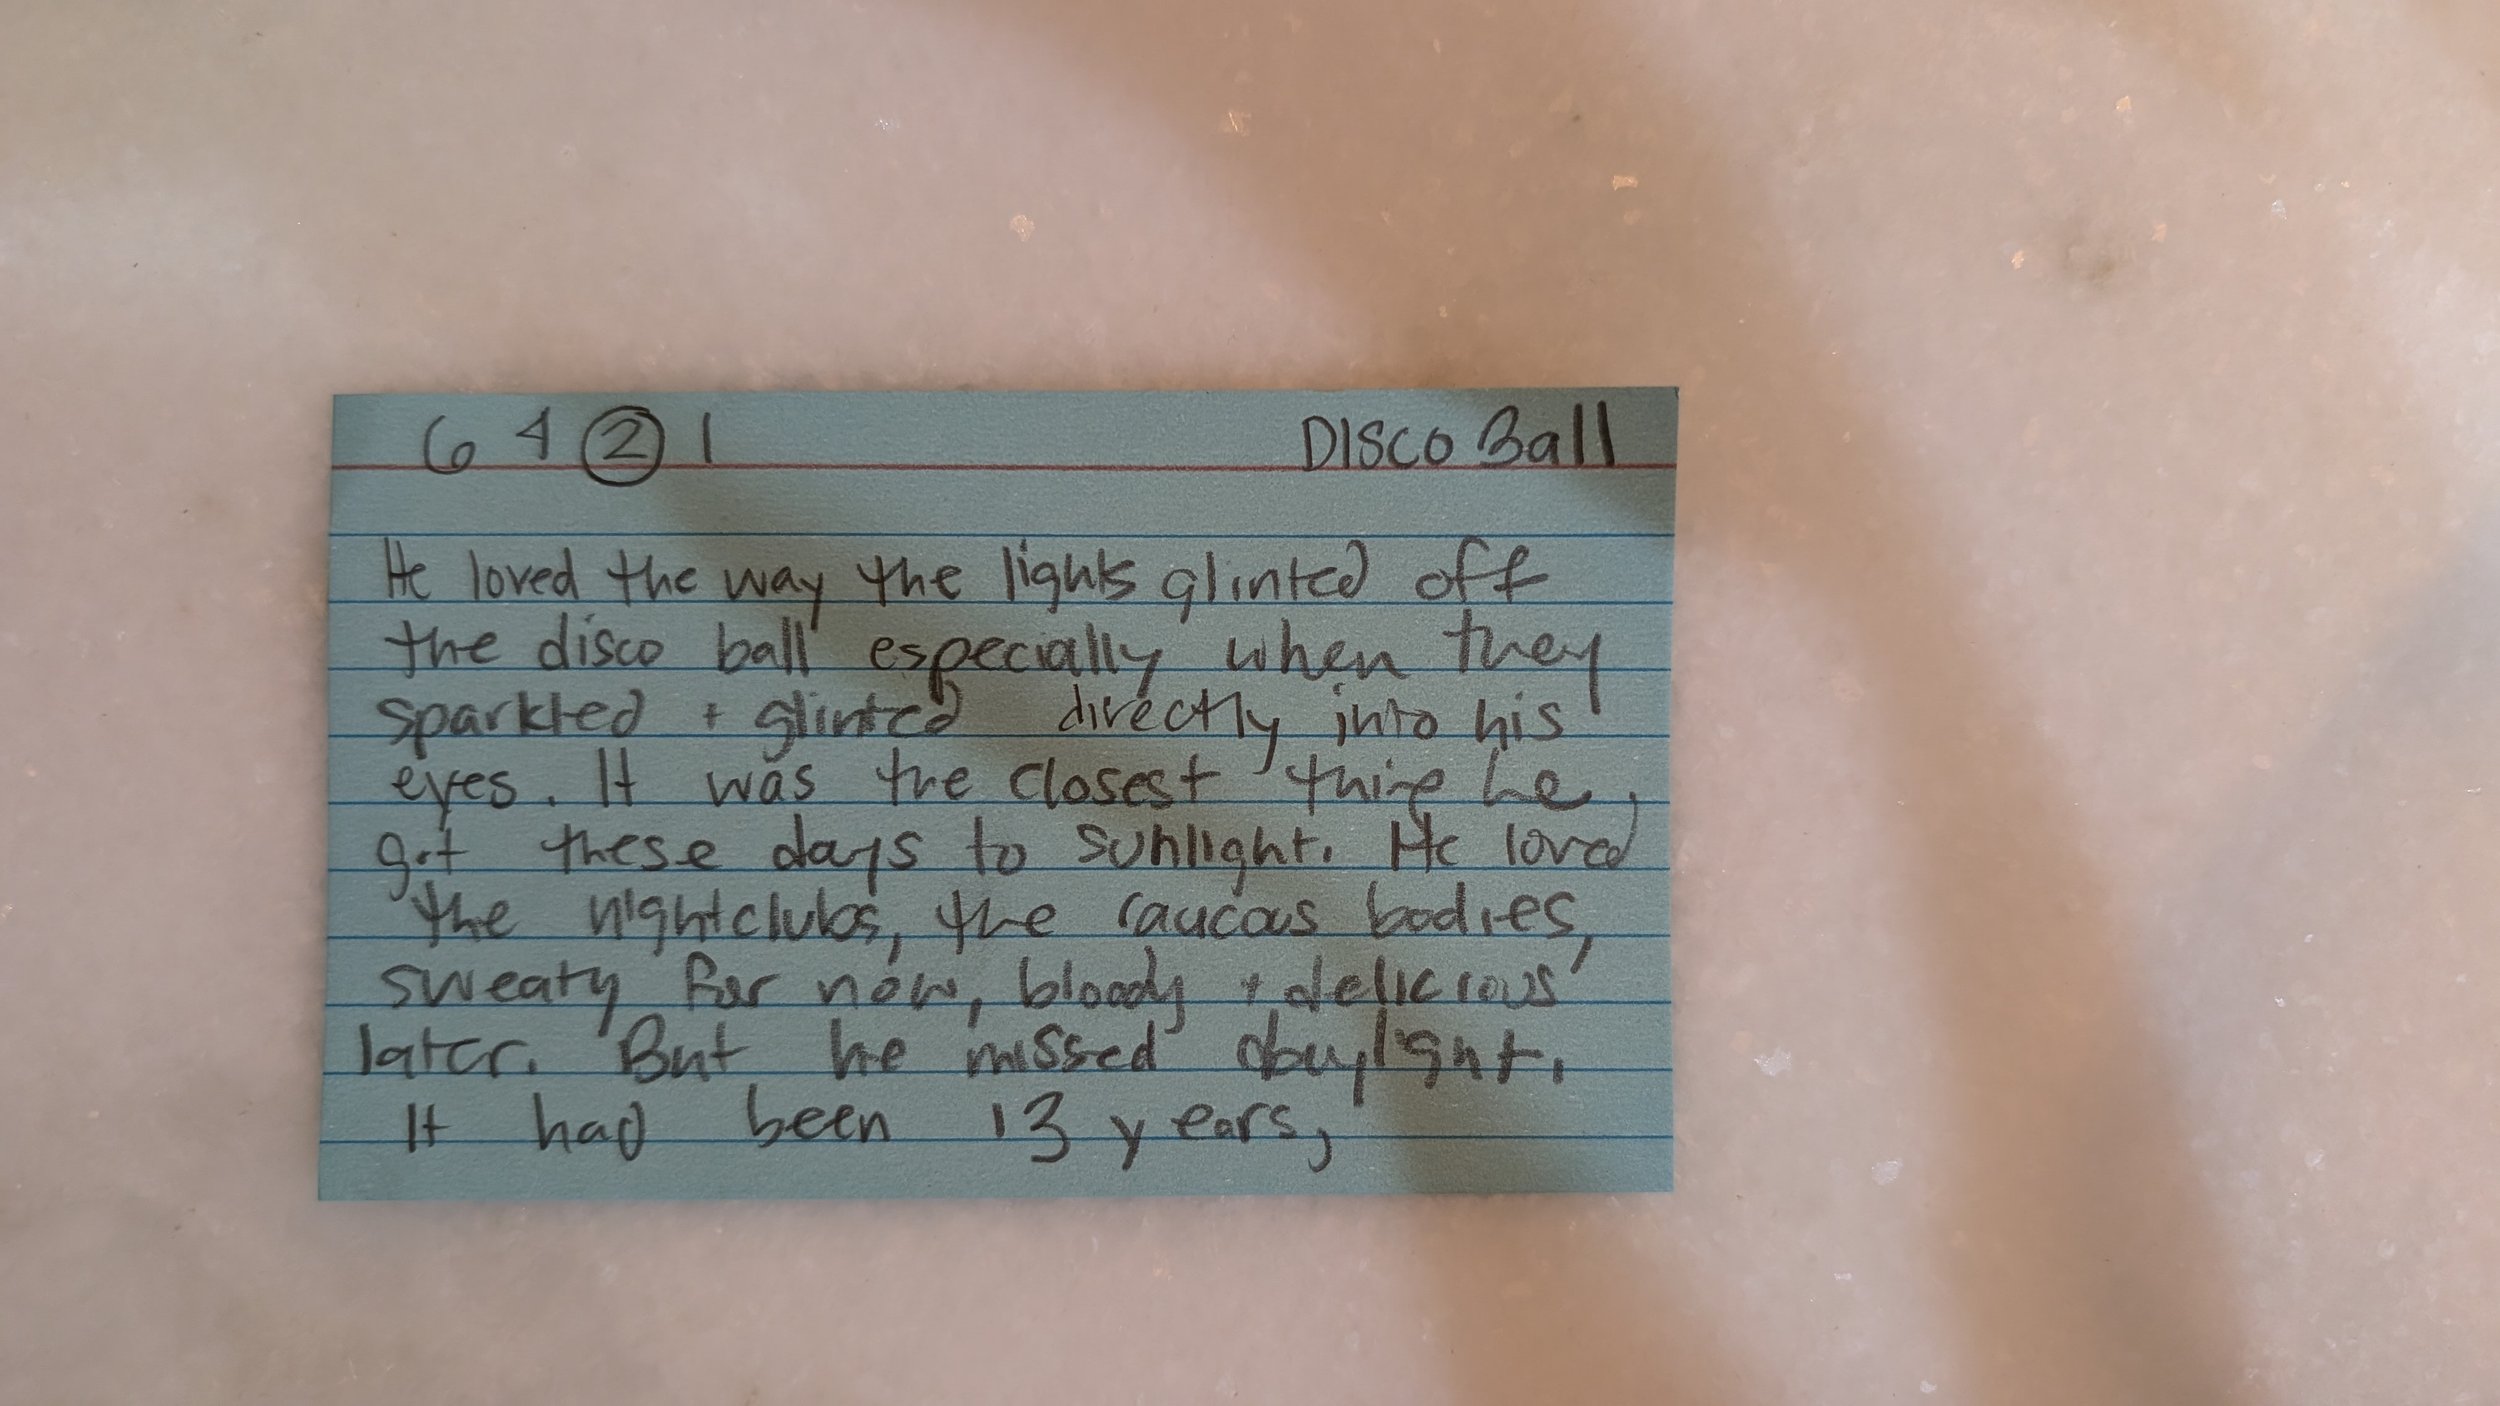 6 4 2 1 DISCO Ball
He loved the way the lights glinted off
the disco ball especially when they
sparkled + glinted directly into his
eyes. It was the closest thing he
got these days to sunlight. He loved
the nightclubs, the raucous bodies,
sweaty for now, bloody + delicious
later. But he missed daylight.
It had been 13 years,